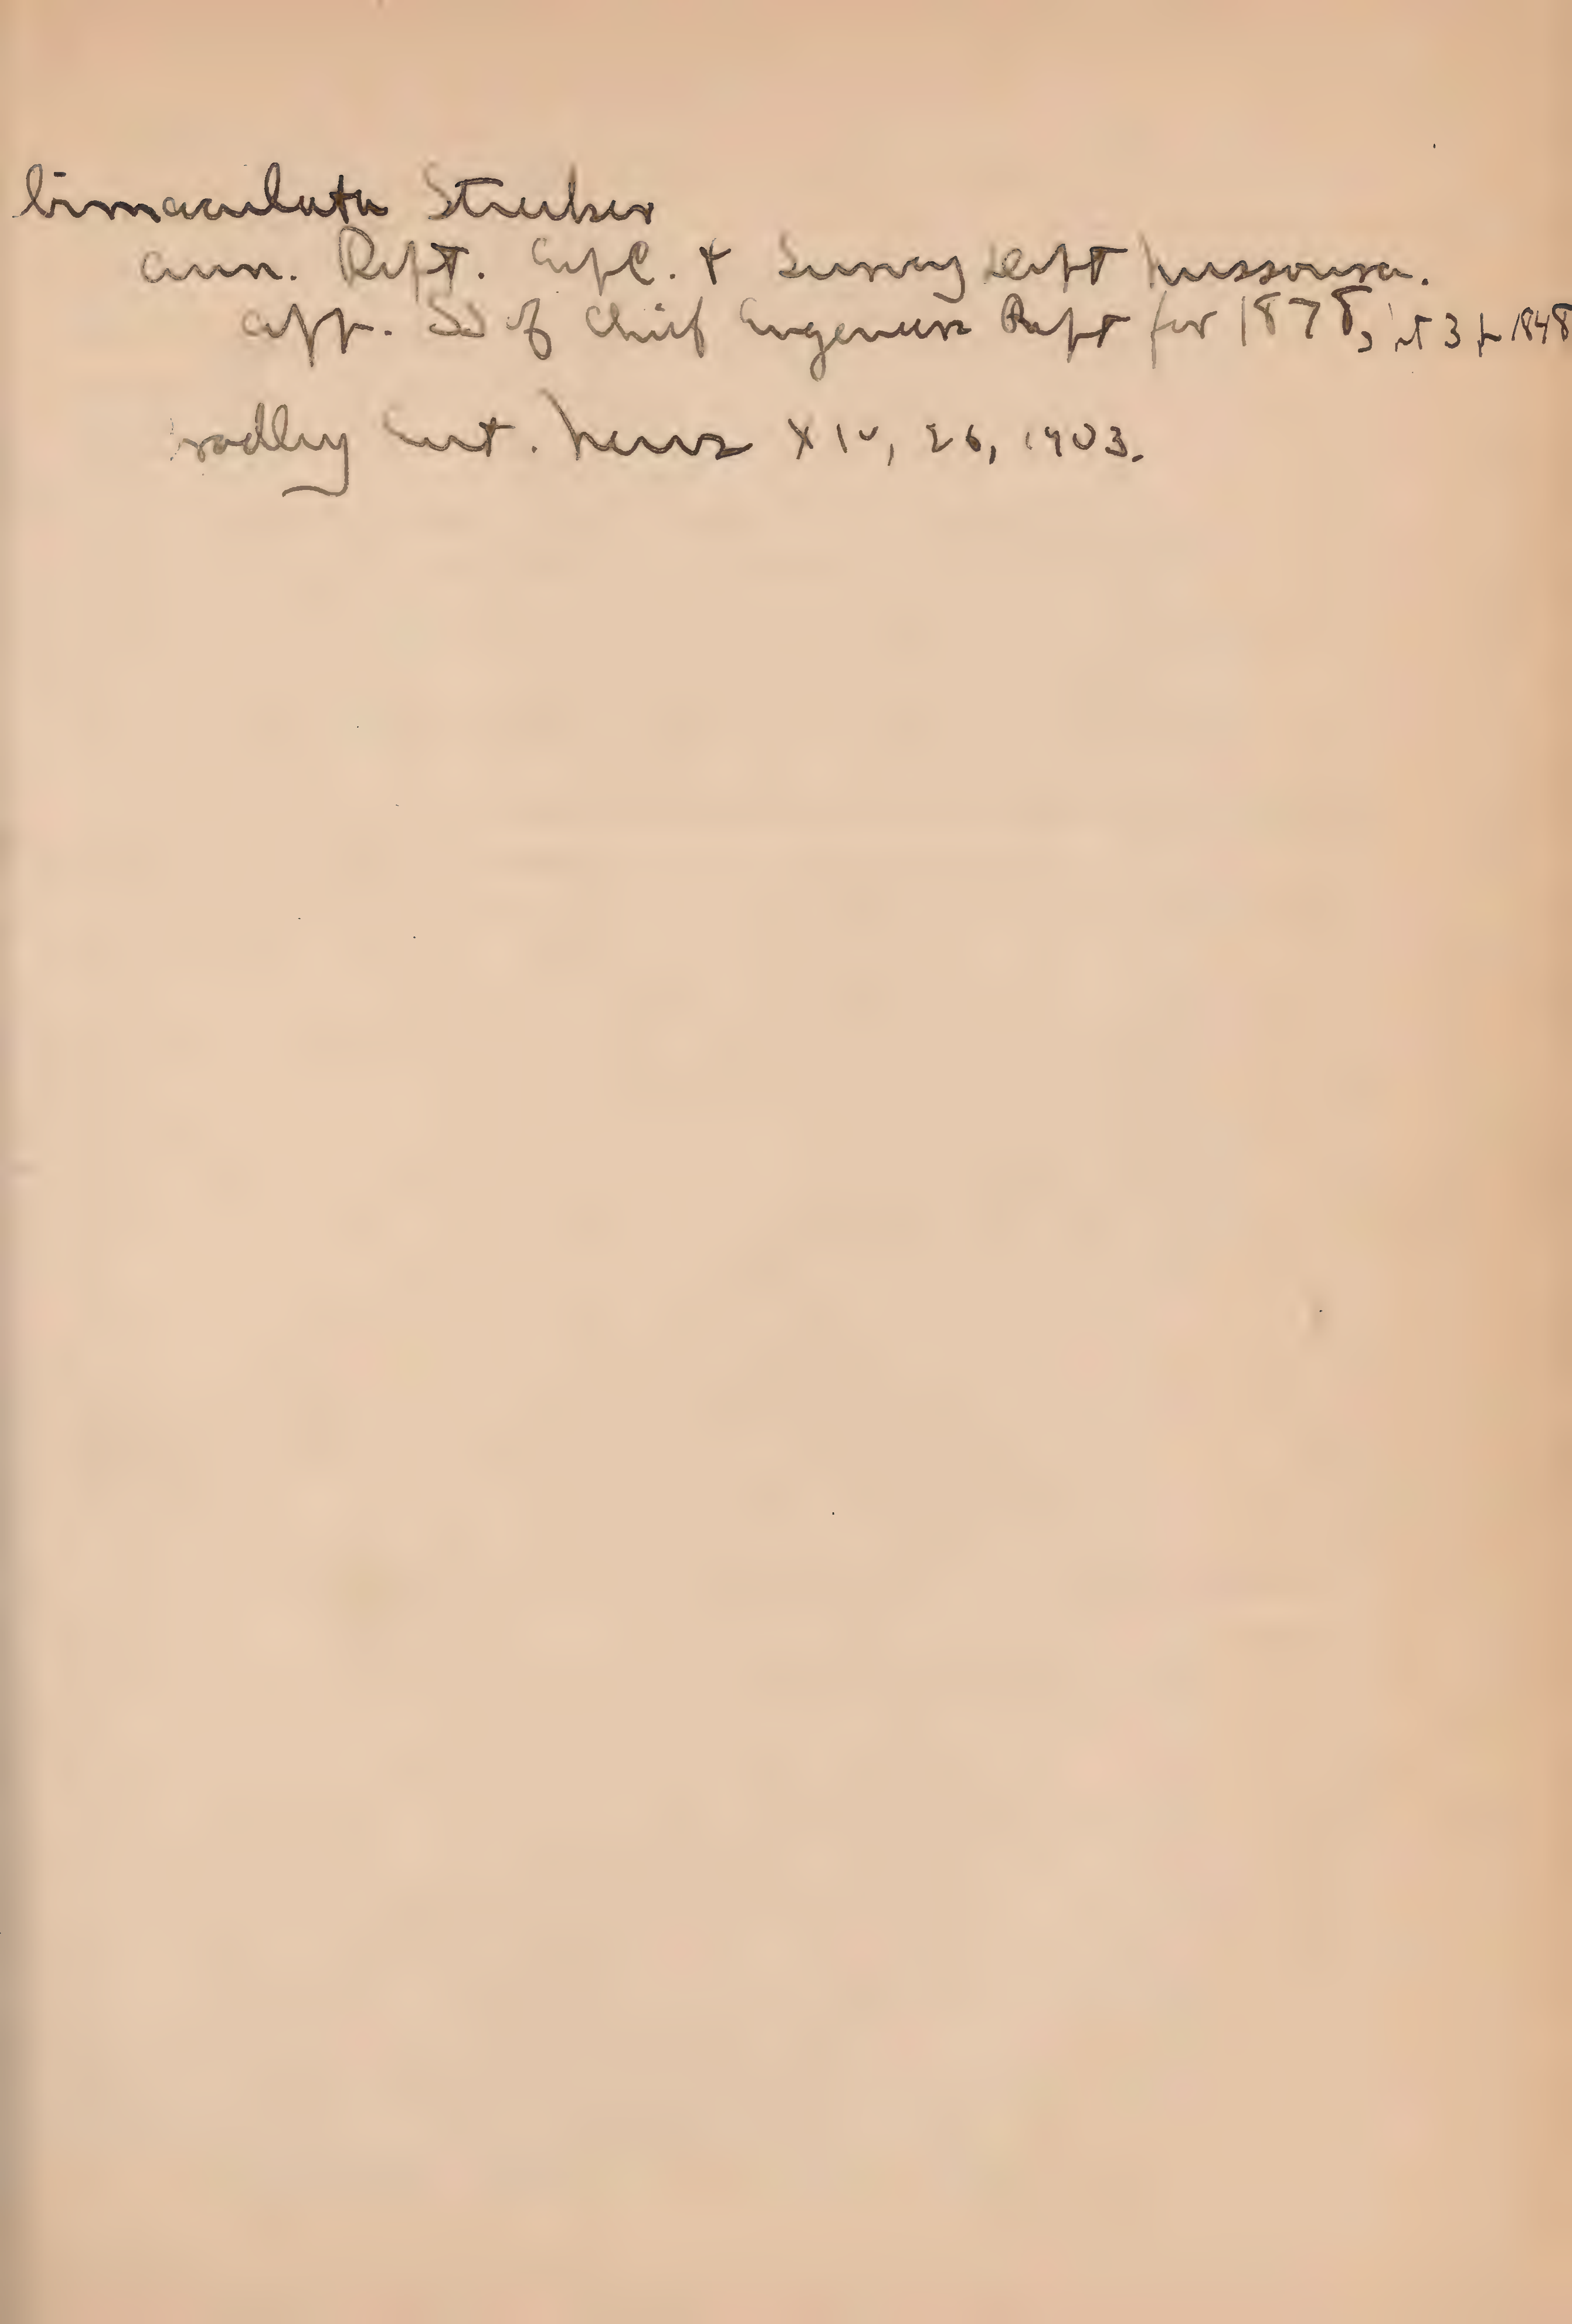 bimaculata Strecker
Ann. Rept. Expl. & Survey Dept Missouri.
App. SS of Chief Engineers Rept for 1878, pt 3 p 1848
radley Ent. News XIV, 26, 1903.